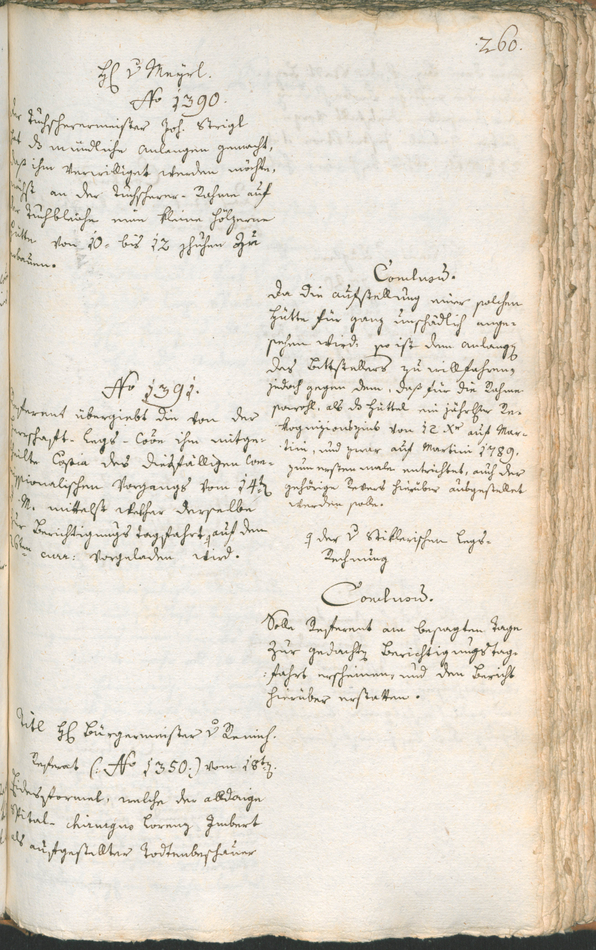 260.
H v Mayrl.
No 1390.
der Tuchscherermeister Joh. Strigl
hat d mündliche Anlangen gemacht,
daß ihm verwilliget werden möchte,
nächst an der Tuchscherer-Rahme auf
der Tuchbleiche eine kleine hölzerne
Hütte von 10. bis 12 Schuhen zu
erbauen.
Conclusum.
Da die Aufstellung einer solchen
Hütte für ganz unschädlich ange-
sehen wird; so ist dem Anlangen
des Bittstellers zu willfahren,
jedoch gegen dem, daß für die Rahme
sowohl, als d Hüttel ein jährlicher Re-
kognizionszins von 12 Xr auf Mar-
tini, und zwar auf Martini 1789.
zum erstenmale entrichtet, auch der
gehörige Revers hierüber ausgestellet
werden solle.
No 1391.
Referent übergiebt die von der
Erbschaft-Legs-Coon ihm mitge-
theilte Copia des dießfälligen Com-
missionalischen Vorgangs vom 14ten
d. M. mittelst welcher derselbe
zur Berichtigungs Tagsfahrt auf den
curr: vorgeladen wird.
der v Stiklerischen Legs-
Rechnung
Conclusum.
Solle Referent am besagten Tage
zur gedachten Berichtigungstag-
fahrt erscheinen, und den Bericht
hierüber erstatten.
Titl H Bürgermeister v Remich.
Referat (: No 1350:) vom 18ten
Eidesformel, welche der alldaige
Spital-Chirurgus Lorenz Imbert
als aufgestellter Todtenbeschauer